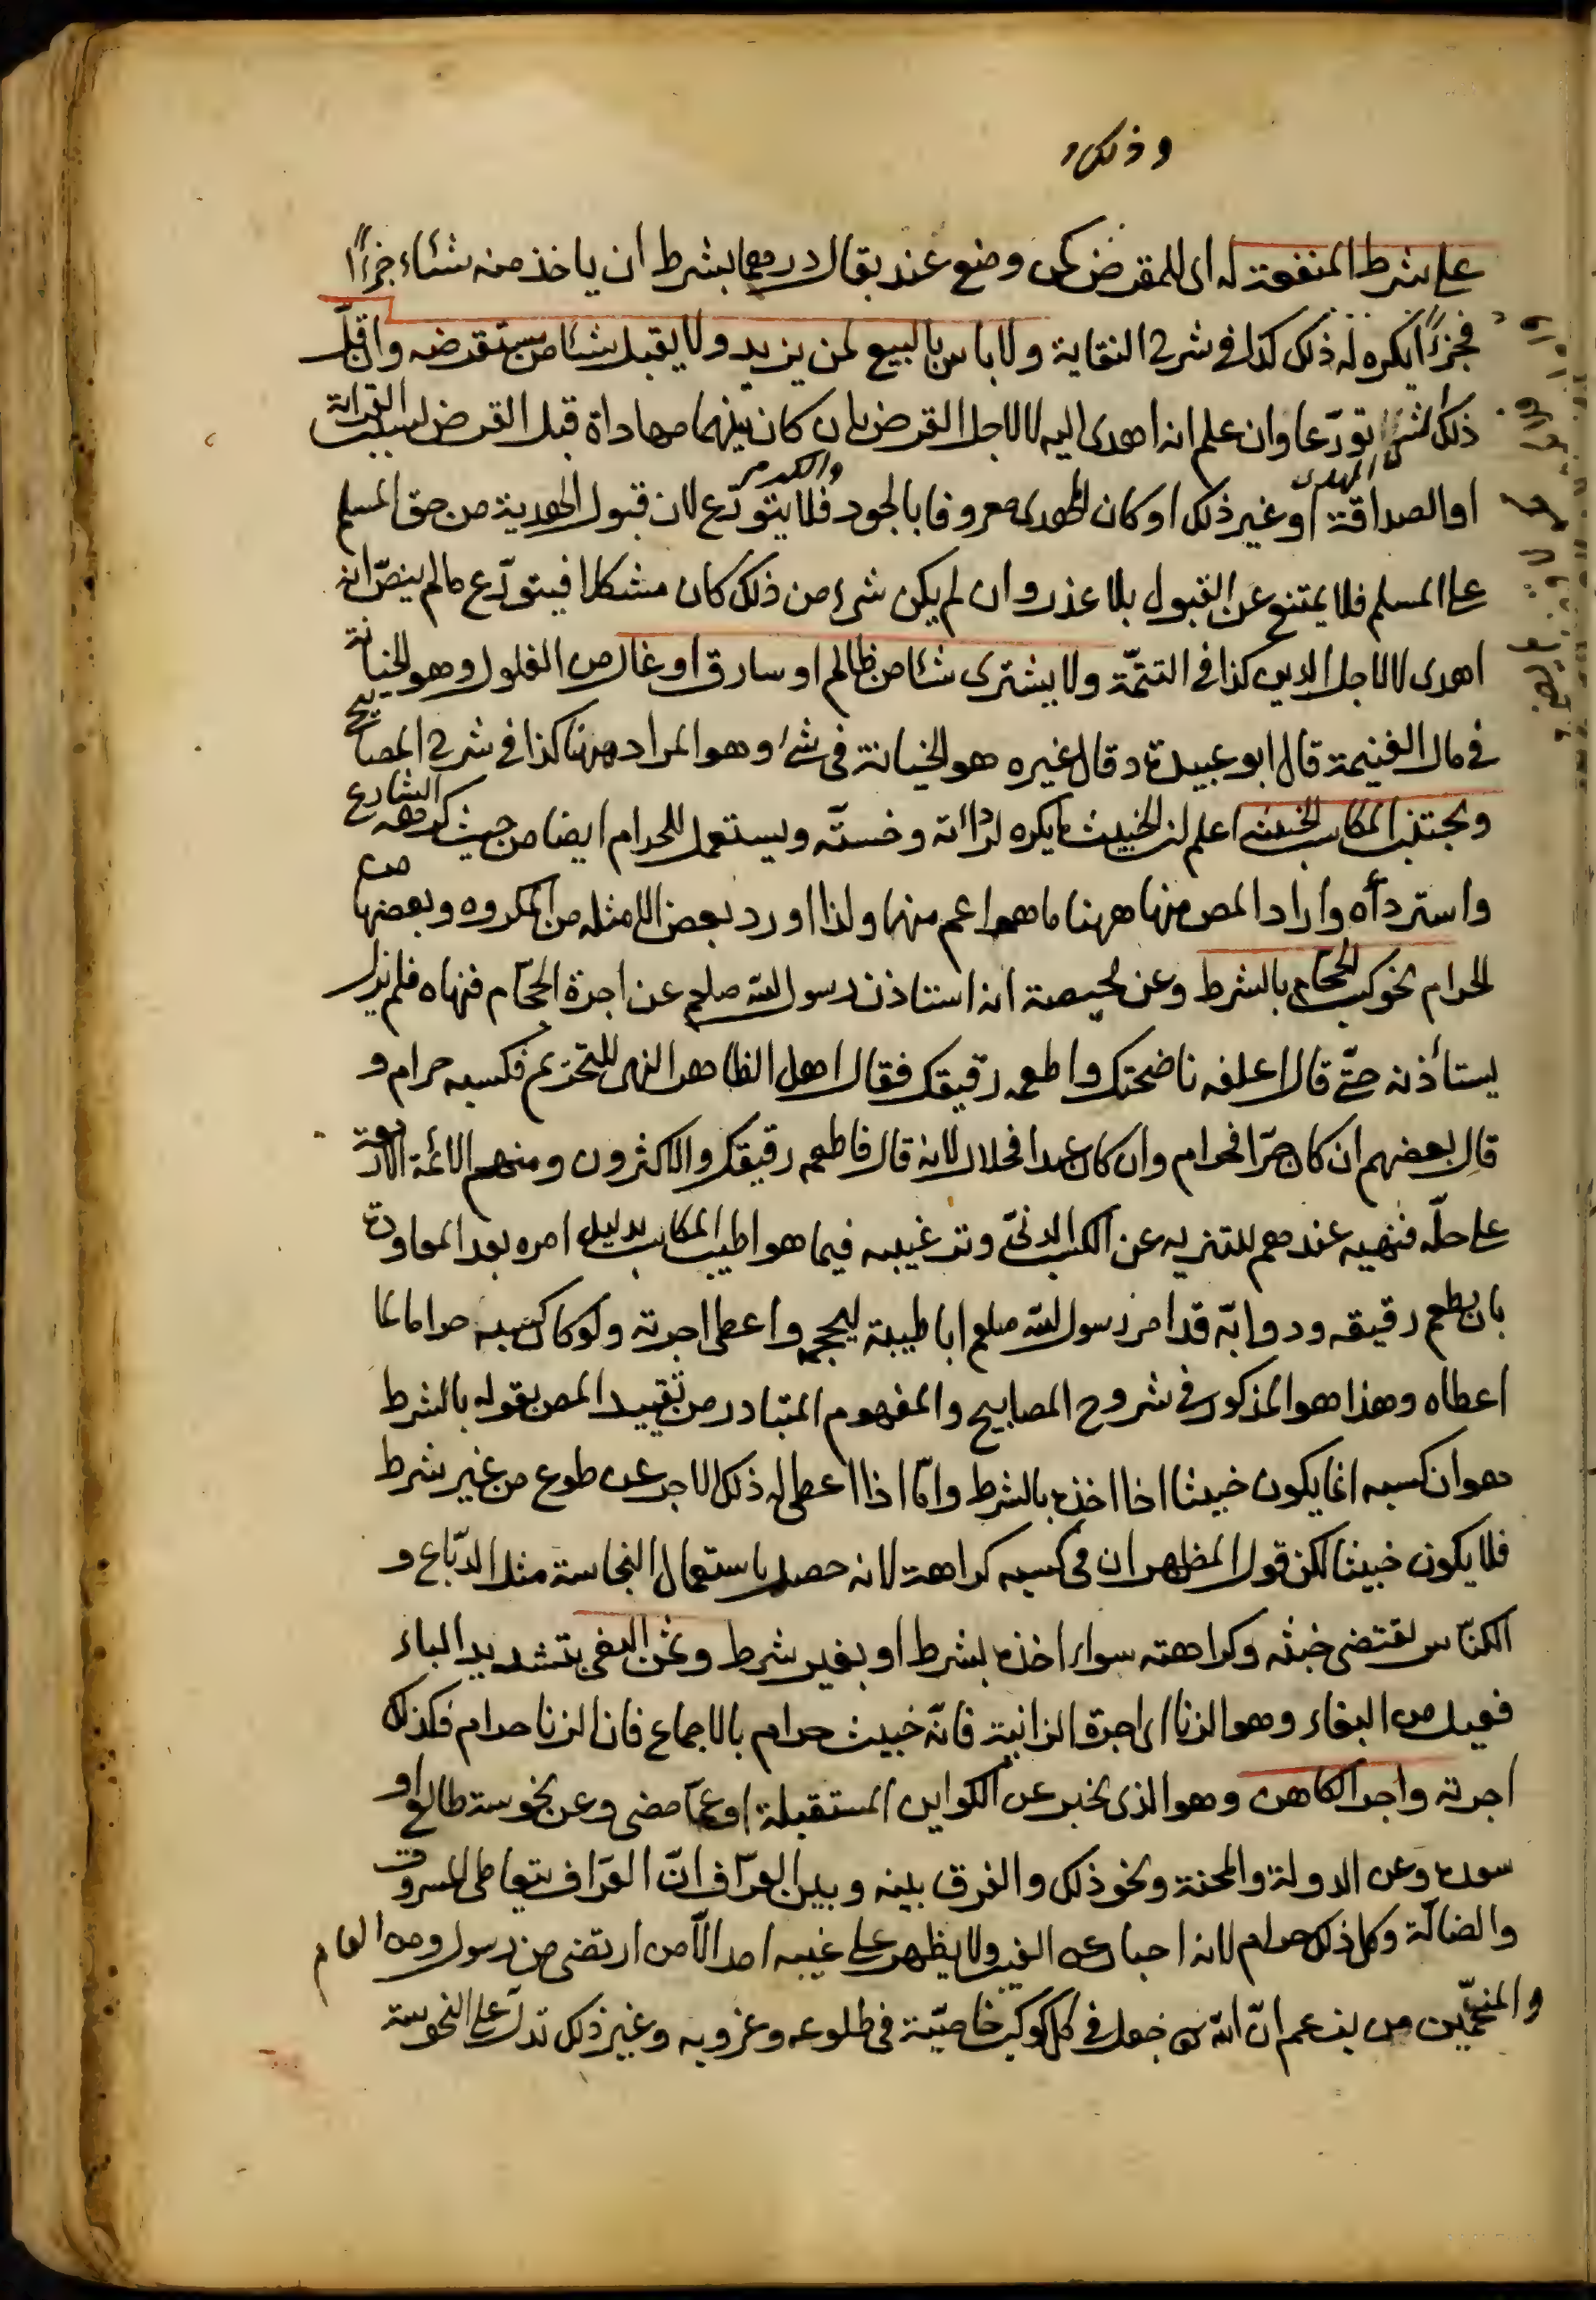 وذلك
على شرط المنفعة له اى للمقرض كمن وضع عند بقال درهما بشرط ان ياخذ منه شئاء جزءًا
فجزءًا يكره له ذلك كذا فى شرح النقاية ولا باس بالبيع لمن يزيد ولا يقبل شئا من مستقرضه وان قل
ذلك الشئ تورّعا وان علم انه اهدى اليه لا لاجل القرض بان كان بينهما مهاداة قبل القرض لسبب القرابة
او الصداقة او غير ذلك او كان المهدى معروفا بالجود والكرم فلا يتورّع لان قبول الهدية من حق المسلم
على المسلم فلا يمتنع عن القبول بلا عذر وان لم يكن شئ من ذلك كان مشكلا فيتورّع ما لم ينصّ انه
اهدى لا لاجل الدين كذا فى التتمّة ولا يشترى شئا من ظالم او سارق او غال من الغلول وهو الخيانة
فى مال الغنيمة قال ابو عبيدة وقال غيره هو الخيانة فى شئ وهو المراد ههنا كذا فى شرح المصابيح
ويجتنب المكاسب الخبيثة اعلم ان الخبيث ما يكره لرداءته وخسته ويستعمل للحرام ايضا من حيث كرهه الشارع
واستردأه واراد المص منها ههنا ما هو اعم منها ولذا اورد بعض الامثلة من المكروه وبعضها من
الحرام نحو كسب الحجام بالشرط وعن محيصة انه استاذن رسول الله صلعم عن اجرة الحجّام فنهاه فلم يزل
يستأذنه حتّى قال اعلفه ناضحتك واطعمه رقيقك فقال اهل الظاهر النهى للتحريم فكسبه حرام و
قال بعضهم ان كان حرّا فحرام وان كان عبدا فحلال لانه قال فاطعمه رقيقك والاكثرون ومنهم الائمة الاربعة
على حلّه فنهيه عندهم للتنزيه عن الكسب الدنىّ وترغيبه فيما هو اطيب المكاسب بدليل امره بعد المعاودة
بان يطعم رقيقه ودوابّه قد امر رسول الله صلعم ابا طيبة ليحجمه واعطى اجرته ولو كان كسبه حراما لما
اعطاه وهذا هو المذكور فى شروح المصابيح والمفهوم المتبادر من تقييد المص بقوله بالشرط
هو ان كسبه انما يكون خبيثا اذا اخذه بالشرط وامّا اذا اعطى له ذلك الاجر عن طوع من غير شرط
فلا يكون خبيثا لكن قول المظهر ان فى كسبه كراهة لانه حصل باستعمال النجاسة مثل الدبّاغ و
الكنّاس يقتضى خبثه وكراهته سواء اخذه بشرط او بغير شرط وثمن البغى بتشديد الياء
فعيل من البغاء وهو الزنا اى اجرة الزانية فانّه خبيث حرام بالاجماع فان الزنا حرام فكذلك
اجرته واجر الكاهن وهو الذى يخبر عن الكواين المستقبلة او عمّا مضى وعن نحوسة طالع او
سعده وعن الدولة والمحنة ونحو ذلك والفرق بينه وبين العرّاف انّ العرّاف يتعاطى المسروق
والضالّة وكل ذلك حرام لانه اخبار عن الغيب ولا يظهر على غيبه احد الّا من ارتضى من رسول ومن العام
والمنجّمين من يزعم انّ الله تعى جعل فى كل كوكب خاصيّة فى طلوعه وغروبه وغير ذلك تدلّ على النحوسة